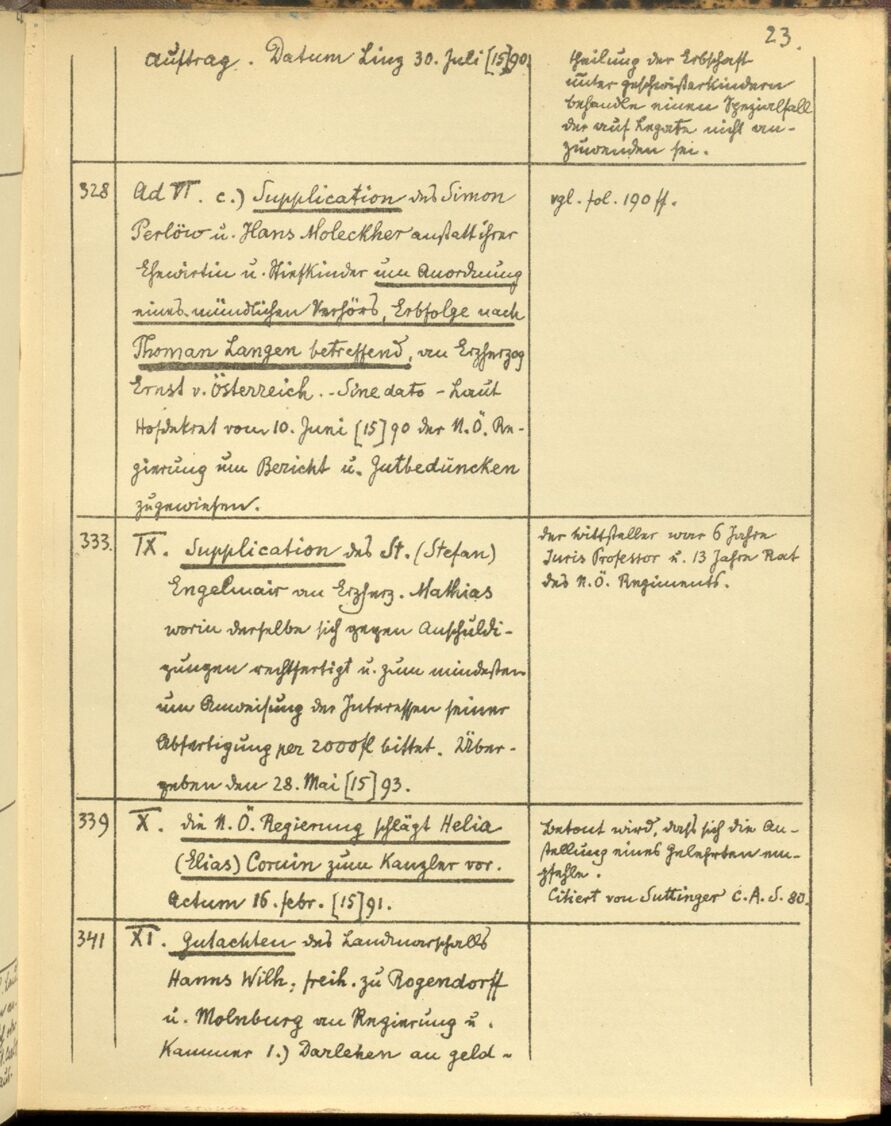 23.
Auftrag. Datum Linz 30. Juli [15]90.
theilung der Erbschaft
unter Geschwisterkindern
behandle einen Spezialfall
der auf Legate nicht an-
zuwenden sei.
328
Ad VI. c.) Supplication des Simon
Perlöw u. Hans Moleckher anstatt ihrer
Ehewirtin u. Stiefkinder um Anordnung
eines mündlichen Verhörs, Erbfolge nach
Thoman Langen betreffend, an Erzherzog
Ernst v. Österreich. - Sine dato - Laut
Hofdekret vom 10. Juni [15]90 der N.Ö. Re-
gierung um Bericht u. Gutbedüncken
zugewiesen.
vgl. fol. 190 ff.
333.
IX. Supplication des St. (Stefan)
Engelmair an Erzherz. Mathias
worin derselbe sich gegen Anschuldi-
gungen rechtfertigt u. zum mindesten
um Anweisung der Interessen seiner
Abfertigung per 2000 fl bittet. Über-
geben den 28. Mai [15]93.
Der Bittsteller war 6 Jahre
Juris Professor u. 13 Jahre Rat
des N.Ö. Regiments.
339
X. Die N.Ö. Regierung schlägt Helia
(Elias) Corvin zum Kanzler vor.
Actum 16. febr. [15]91.
Betont wird, daß sich die An-
stellung eines Gelehrten em-
pfehle.
Citiert von Suttinger C.A. S. 80.
341
XI. Gutachten des Landmarschalls
Hanns Wilh. freih. zu Rogendorff
u. Molnburg an Regierung u.
Kammer 1.) Darlehen an geld-